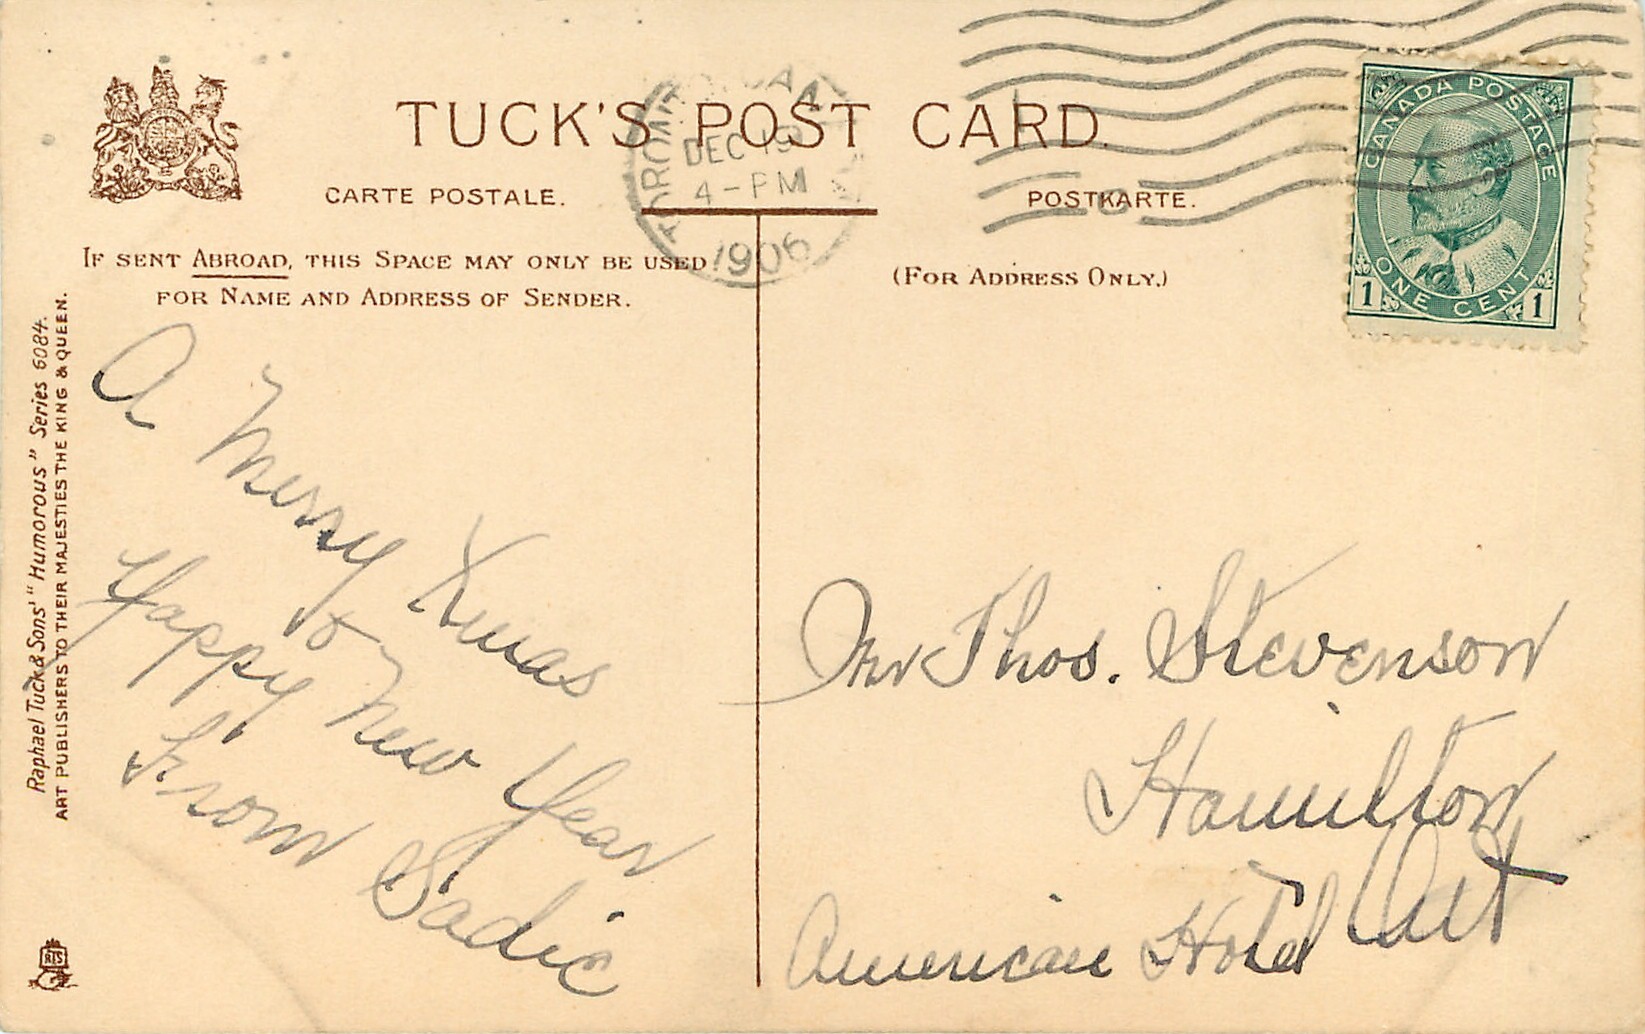 TUCK'S POST CARD.
CARTE POSTALE.
POSTKARTE.
TORONTO CAN
DEC 19
4 - PM
1906
CANADA POSTAGE
ONE CENT
1 1
IF SENT ABROAD, THIS SPACE MAY ONLY BE USED
FOR NAME AND ADDRESS OF SENDER.
(FOR ADDRESS ONLY.)
Raphael Tuck & Sons' "Humorous" Series 6084.
ART PUBLISHERS TO THEIR MAJESTIES THE KING & QUEEN.
A Merry Xmas
&
Happy New Year
From Sadie
Mr Thos. Stevenson
Hamilton
Ont
American Hotel